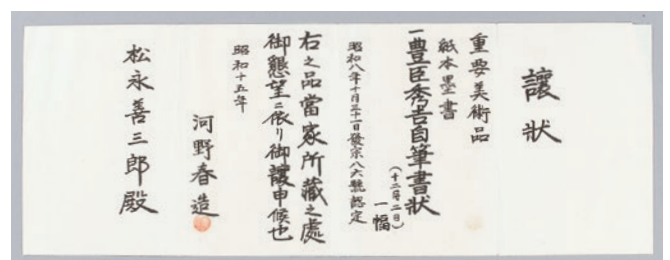 讓狀
重要美術品
紙本墨書
一豊臣秀吉自筆書狀
(十二月二日)
一幅
昭和八年十月三十一日發宗八六號認定
右之品當家所藏之處
御懇望ニ依リ御讓申候也
昭和十五年
河野春造
松永善三郎殿